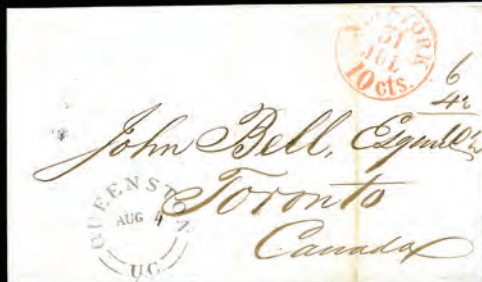 NEW YORK
31
JUL
10 cts.
6
4½
John Bell, Esquire 10½
Toronto
Canada
QUEENSTON
AUG 4
U.C.